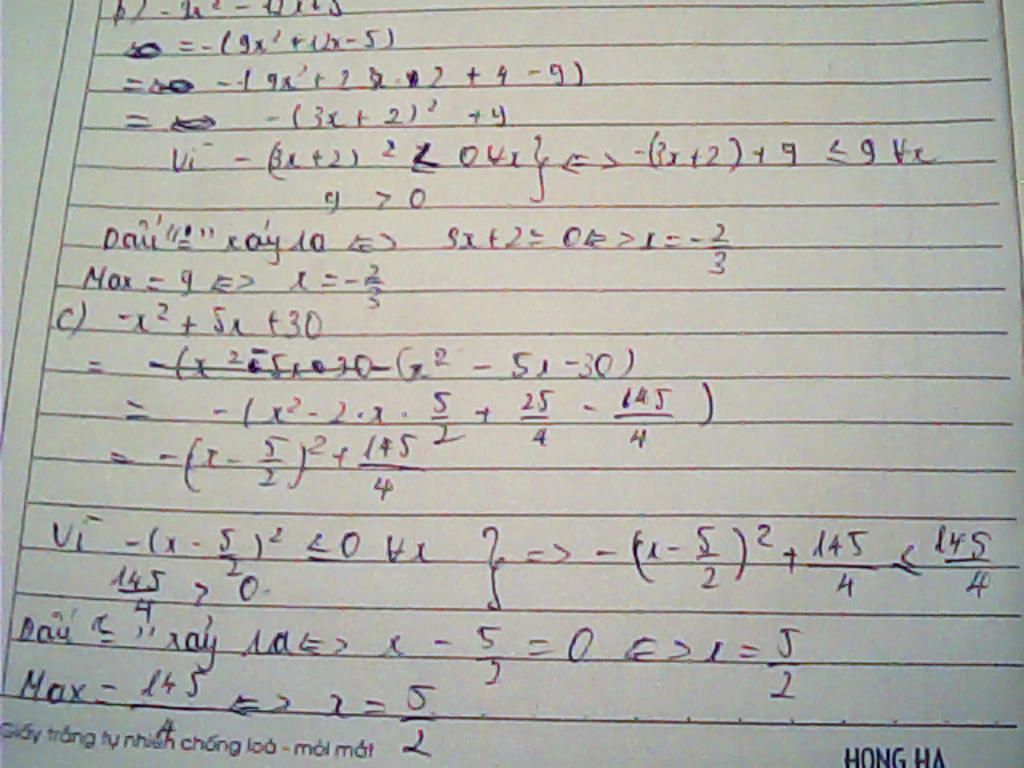 b) -9x² - 12x + 5
= -(9x² + 12x - 5)
= -(9x² + 2 3x . 2 + 4 - 9)
= -(3x + 2)² + 9
Vì -(3x + 2)² ≤ 0 ∀x } <=> -(3x + 2) + 9 ≤ 9 ∀x
9 > 0
Dấu "=" xảy ra <=> 3x + 2 = 0 <=> x = -2/3
Max = 9 <=> x = -2/3
c) -x² + 5x + 30
= -(x² - 5x - 30)
= -(x² - 2.x.5/2 + 25/4 - 145/4)
= -(x - 5/2)² + 145/4
Vì -(x - 5/2)² ≤ 0 ∀x } => -(x - 5/2)² + 145/4 ≤ 145/4
145/4 > 0.
Dấu "=" xảy ra <=> x - 5/2 = 0 <=> x = 5/2
Max = 145/4 <=> x = 5/2
Giấy trắng tự nhiên chống loá - mỏi mắt
HONG HA